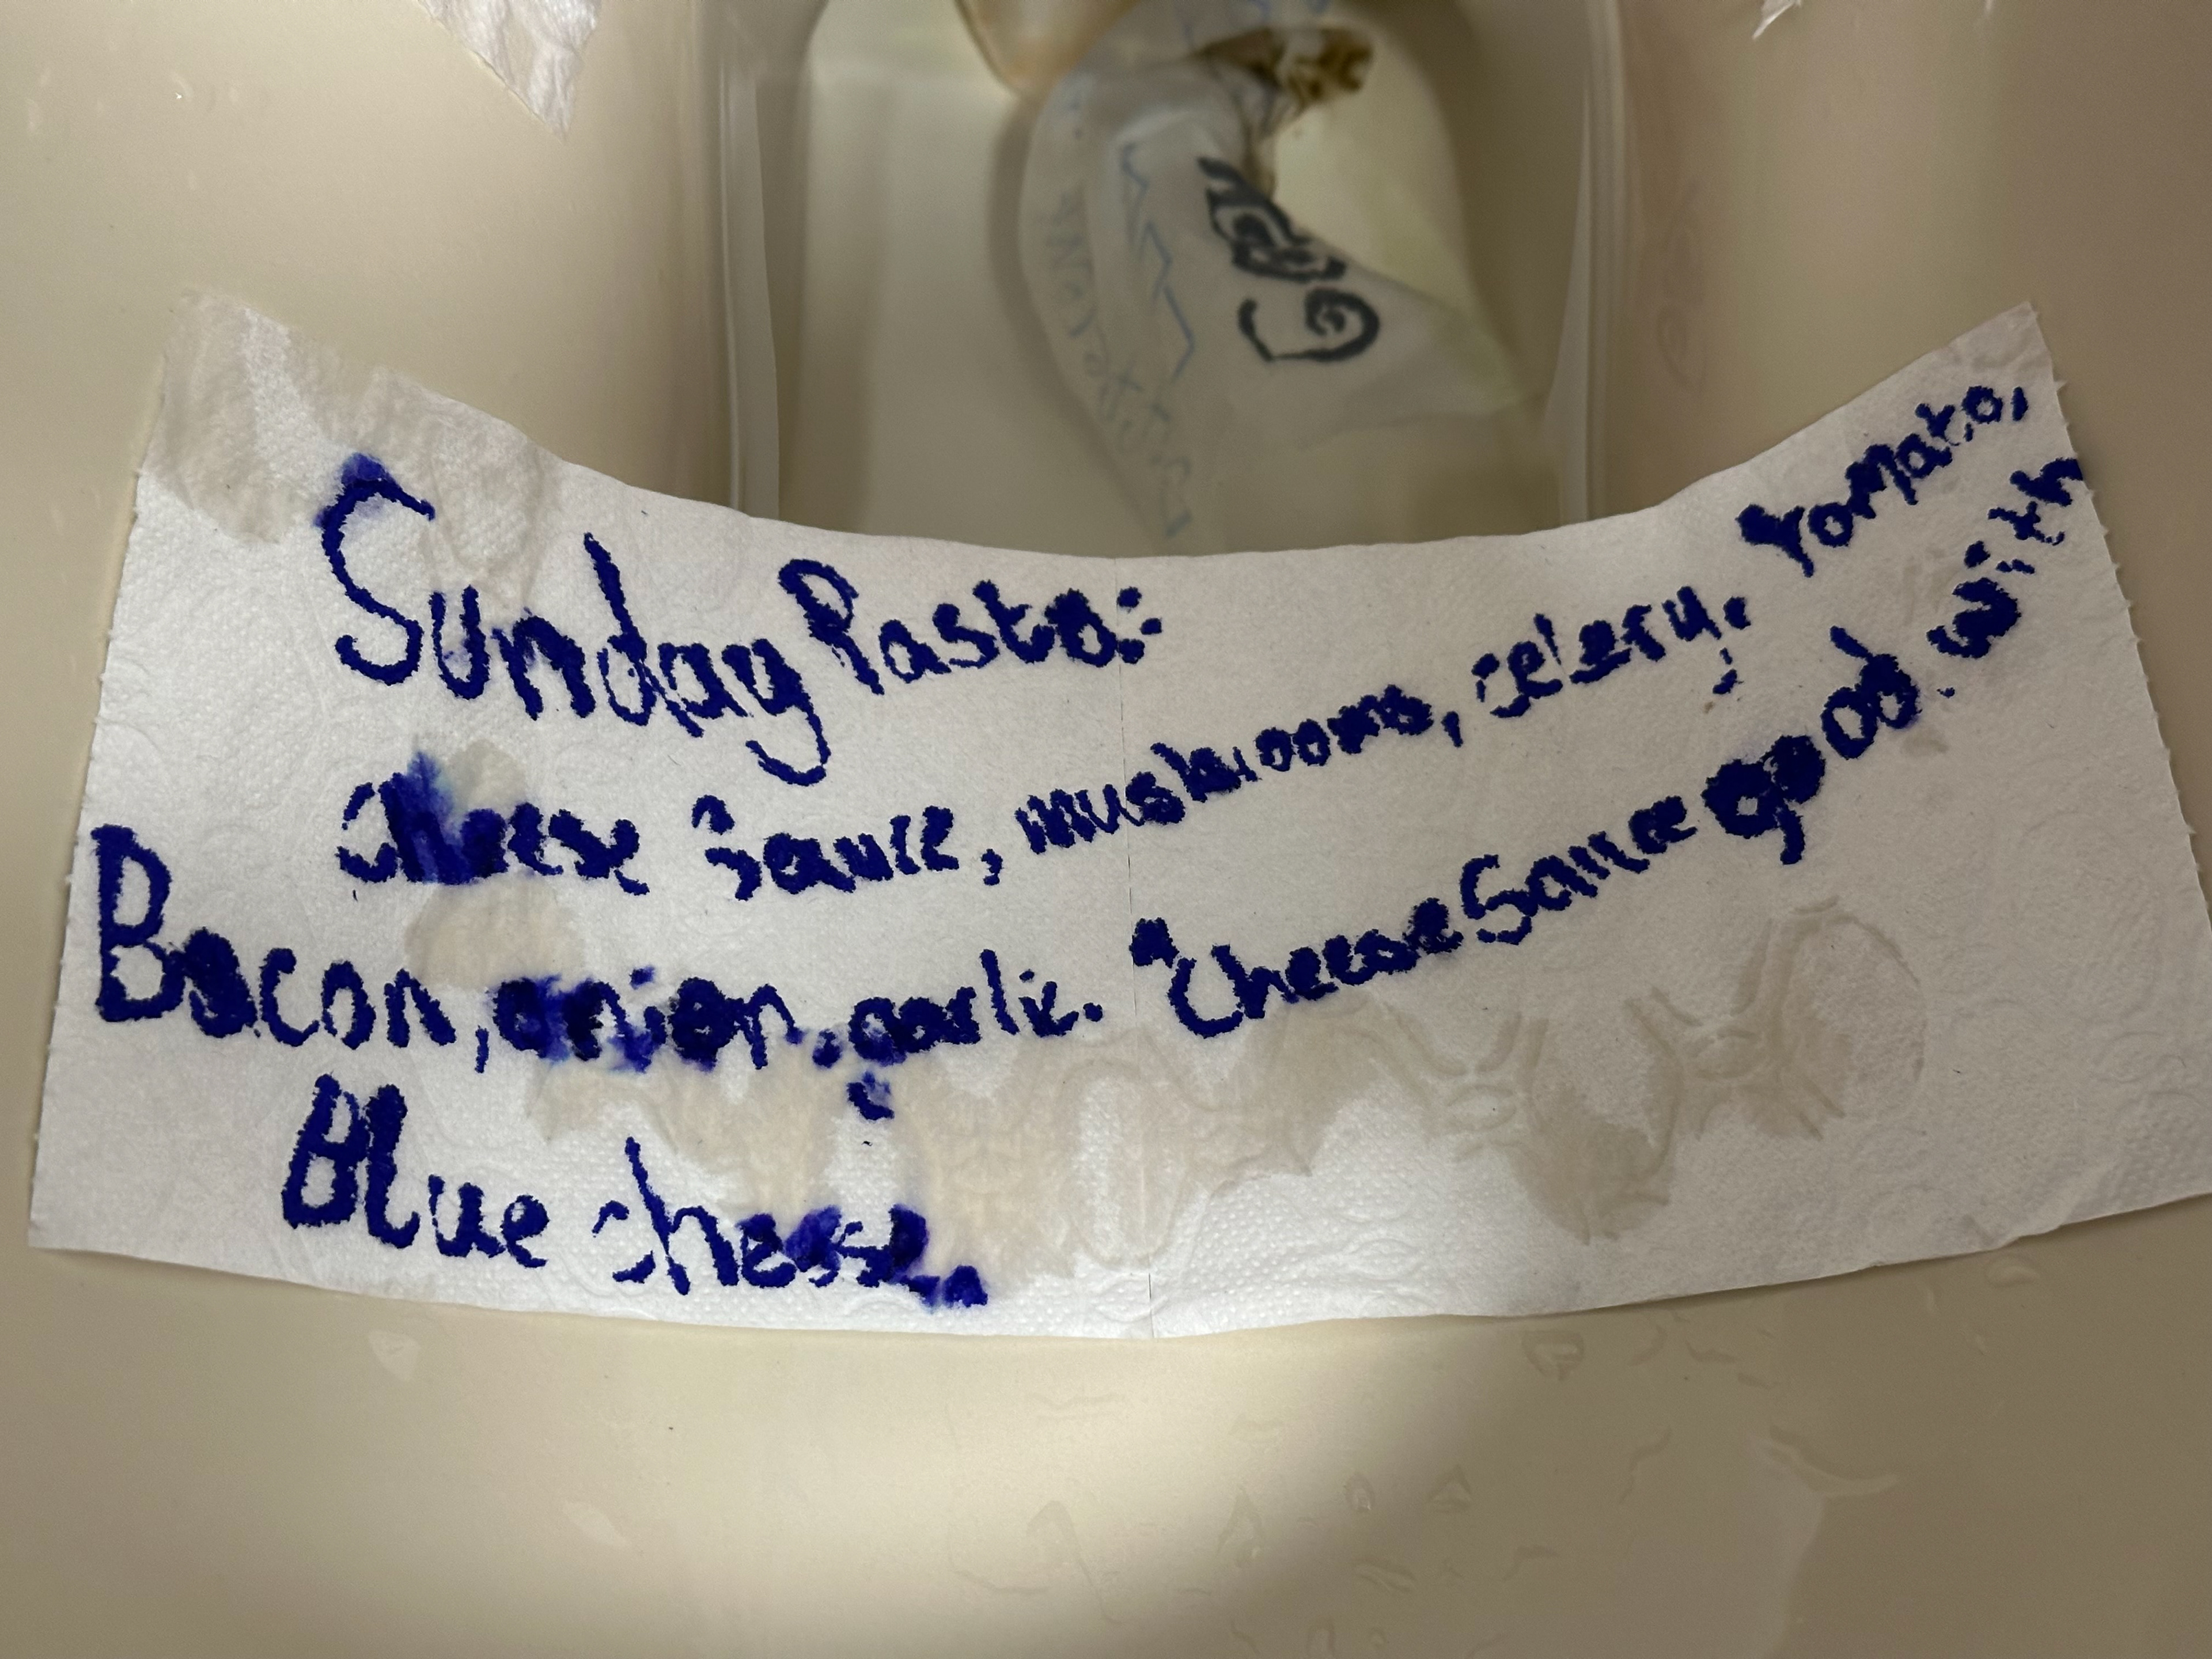 Sunday Pasta:
Cheese Sauce, mushrooms, celery, tomato,
Bacon, onion, garlic. *Cheese Sauce good with
Blue cheese.